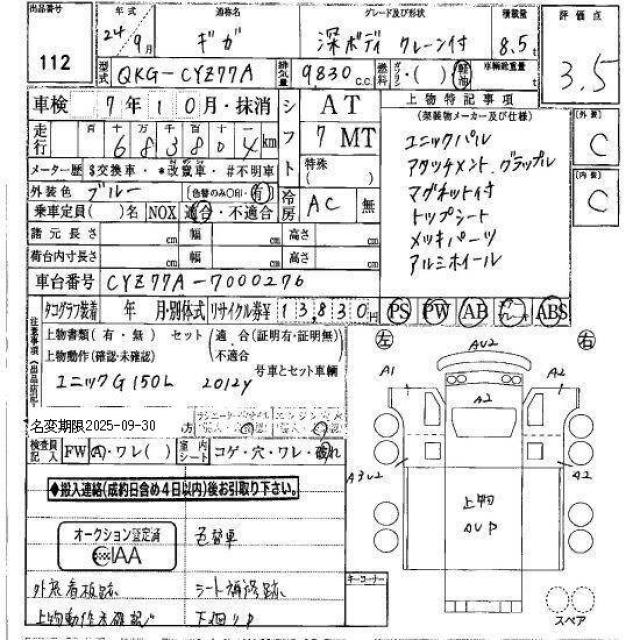 出品番号 112
年式 24/9月
通称名 ギガ
グレード及び形状 深ボディ クレーン付
積載量 8.5t
評価点 3.5
型式 QKG-CYZ77A
排気量 9830 C.C.
燃料 ガソリン・( ) 軽油
車輌総重量 t
車検 7年10月・抹消
シフト AT
7 MT
特殊 ( )
走行 百 十 万 千 百 十 一
683804 km
メーター歴 $交換車・*改竄車・#不明車
外装色 ブルー (色替のみ○印・有)
冷房 AC 無
乗車定員( )名 NOX 適合・不適合
諸元長さ cm 幅 cm 高さ cm
荷台内寸長さ cm 幅 cm 高さ cm
車台番号 CYZ77A-7000276
上物特記事項
(架装物メーカー及び仕様)
ユニックパル
アタッチメント、グラップル
マグネット付
トップシート
メッキパーツ
アルミホイール
外装 C
内装 C
タコグラフ装着 年 月・別体式 リサイクル券¥ 13,830円 PS PW AB ABS
注意事項(出品店記)
上物書類(有・無) セット (適 合(証明有・証明無)
上物動作(確認・未確認) (不適合 号車とセット車輌
ユニックG150L 2012y
名変期限2025-09-30
検査員記入 FW A・ワレ( ) 室内シート コゲ・穴・ワレ・破れ
◆搬入連絡(成約日含め4日以内)後お引取り下さい。
オークション査定済
IAA
色替車
外装看板跡 シート補修跡
上物動作未確認 下回りP
コーナー
左 右
AU2
A1 A2 A2
A3U2 A2
上物
AUP
スペア